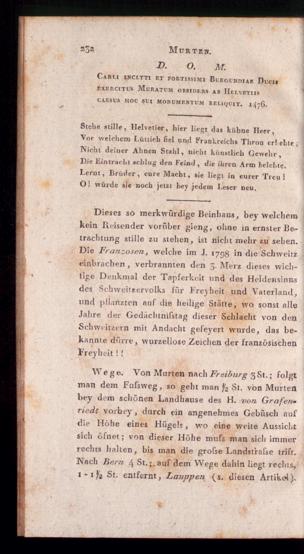 232 MURTEN.
D. O. M.
CARLI INCLYTI ET FORTISSIMI BURGUNDIAE DUCIS
EXERCITUS MURATUM OBSIDENS AB HELVETIIS
CAESUS HOC SUI MONUMENTUM RELIQUIT. 1476.
Stehe stille, Helvetier, hier liegt das kühne Heer,
Vor welchem Lüttich fiel und Frankreichs Thron erbebte;
Nicht deiner Ahnen Stahl, nicht künstlich Gewehr,
Die Eintracht schlug den Feind, die ihren Arm belebte.
Lernt, Brüder, eure Macht, sie liegt in eurer Treu!
O! würde sie noch jetzt bey jedem Leser neu.
Dieses so merkwürdige Beinhaus, bey welchem
kein Reisender vorüber gieng, ohne in ernster Be-
trachtung stille zu stehen, ist nicht mehr zu sehen.
Die Franzosen, welche im J. 1798 in die Schweitz
einbrachen, verbrannten den 3. Merz dieses wich-
tige Denkmal der Tapferkeit und des Heldensinns
des Schweitzervolks für Freyheit und Vaterland,
und pflanzten auf die heilige Stätte, wo sonst alle
Jahre der Gedächtnisstag dieser Schlacht von den
Schweitzern mit Andacht gefeyert wurde, das be-
kannte dürre, wurzellose Zeichen der französischen
Freyheit!!
Wege. Von Murten nach Freiburg 3 St.; folgt
man dem Fussweg, so geht man ½ St. von Murten
bey dem schönen Landhause des H. von Grafen-
riedt vorbey, durch ein angenehmes Gebüsch auf
die Höhe eines Hügels, wo eine weite Aussicht
sich öfnet; von dieser Höhe muss man sich immer
rechts halten, bis man die grosse Landstrasse trift.
Nach Bern 4 St.; auf dem Wege dahin liegt rechts,
1-1½ St. entfernt, Lauppen (s. diesen Artikel).